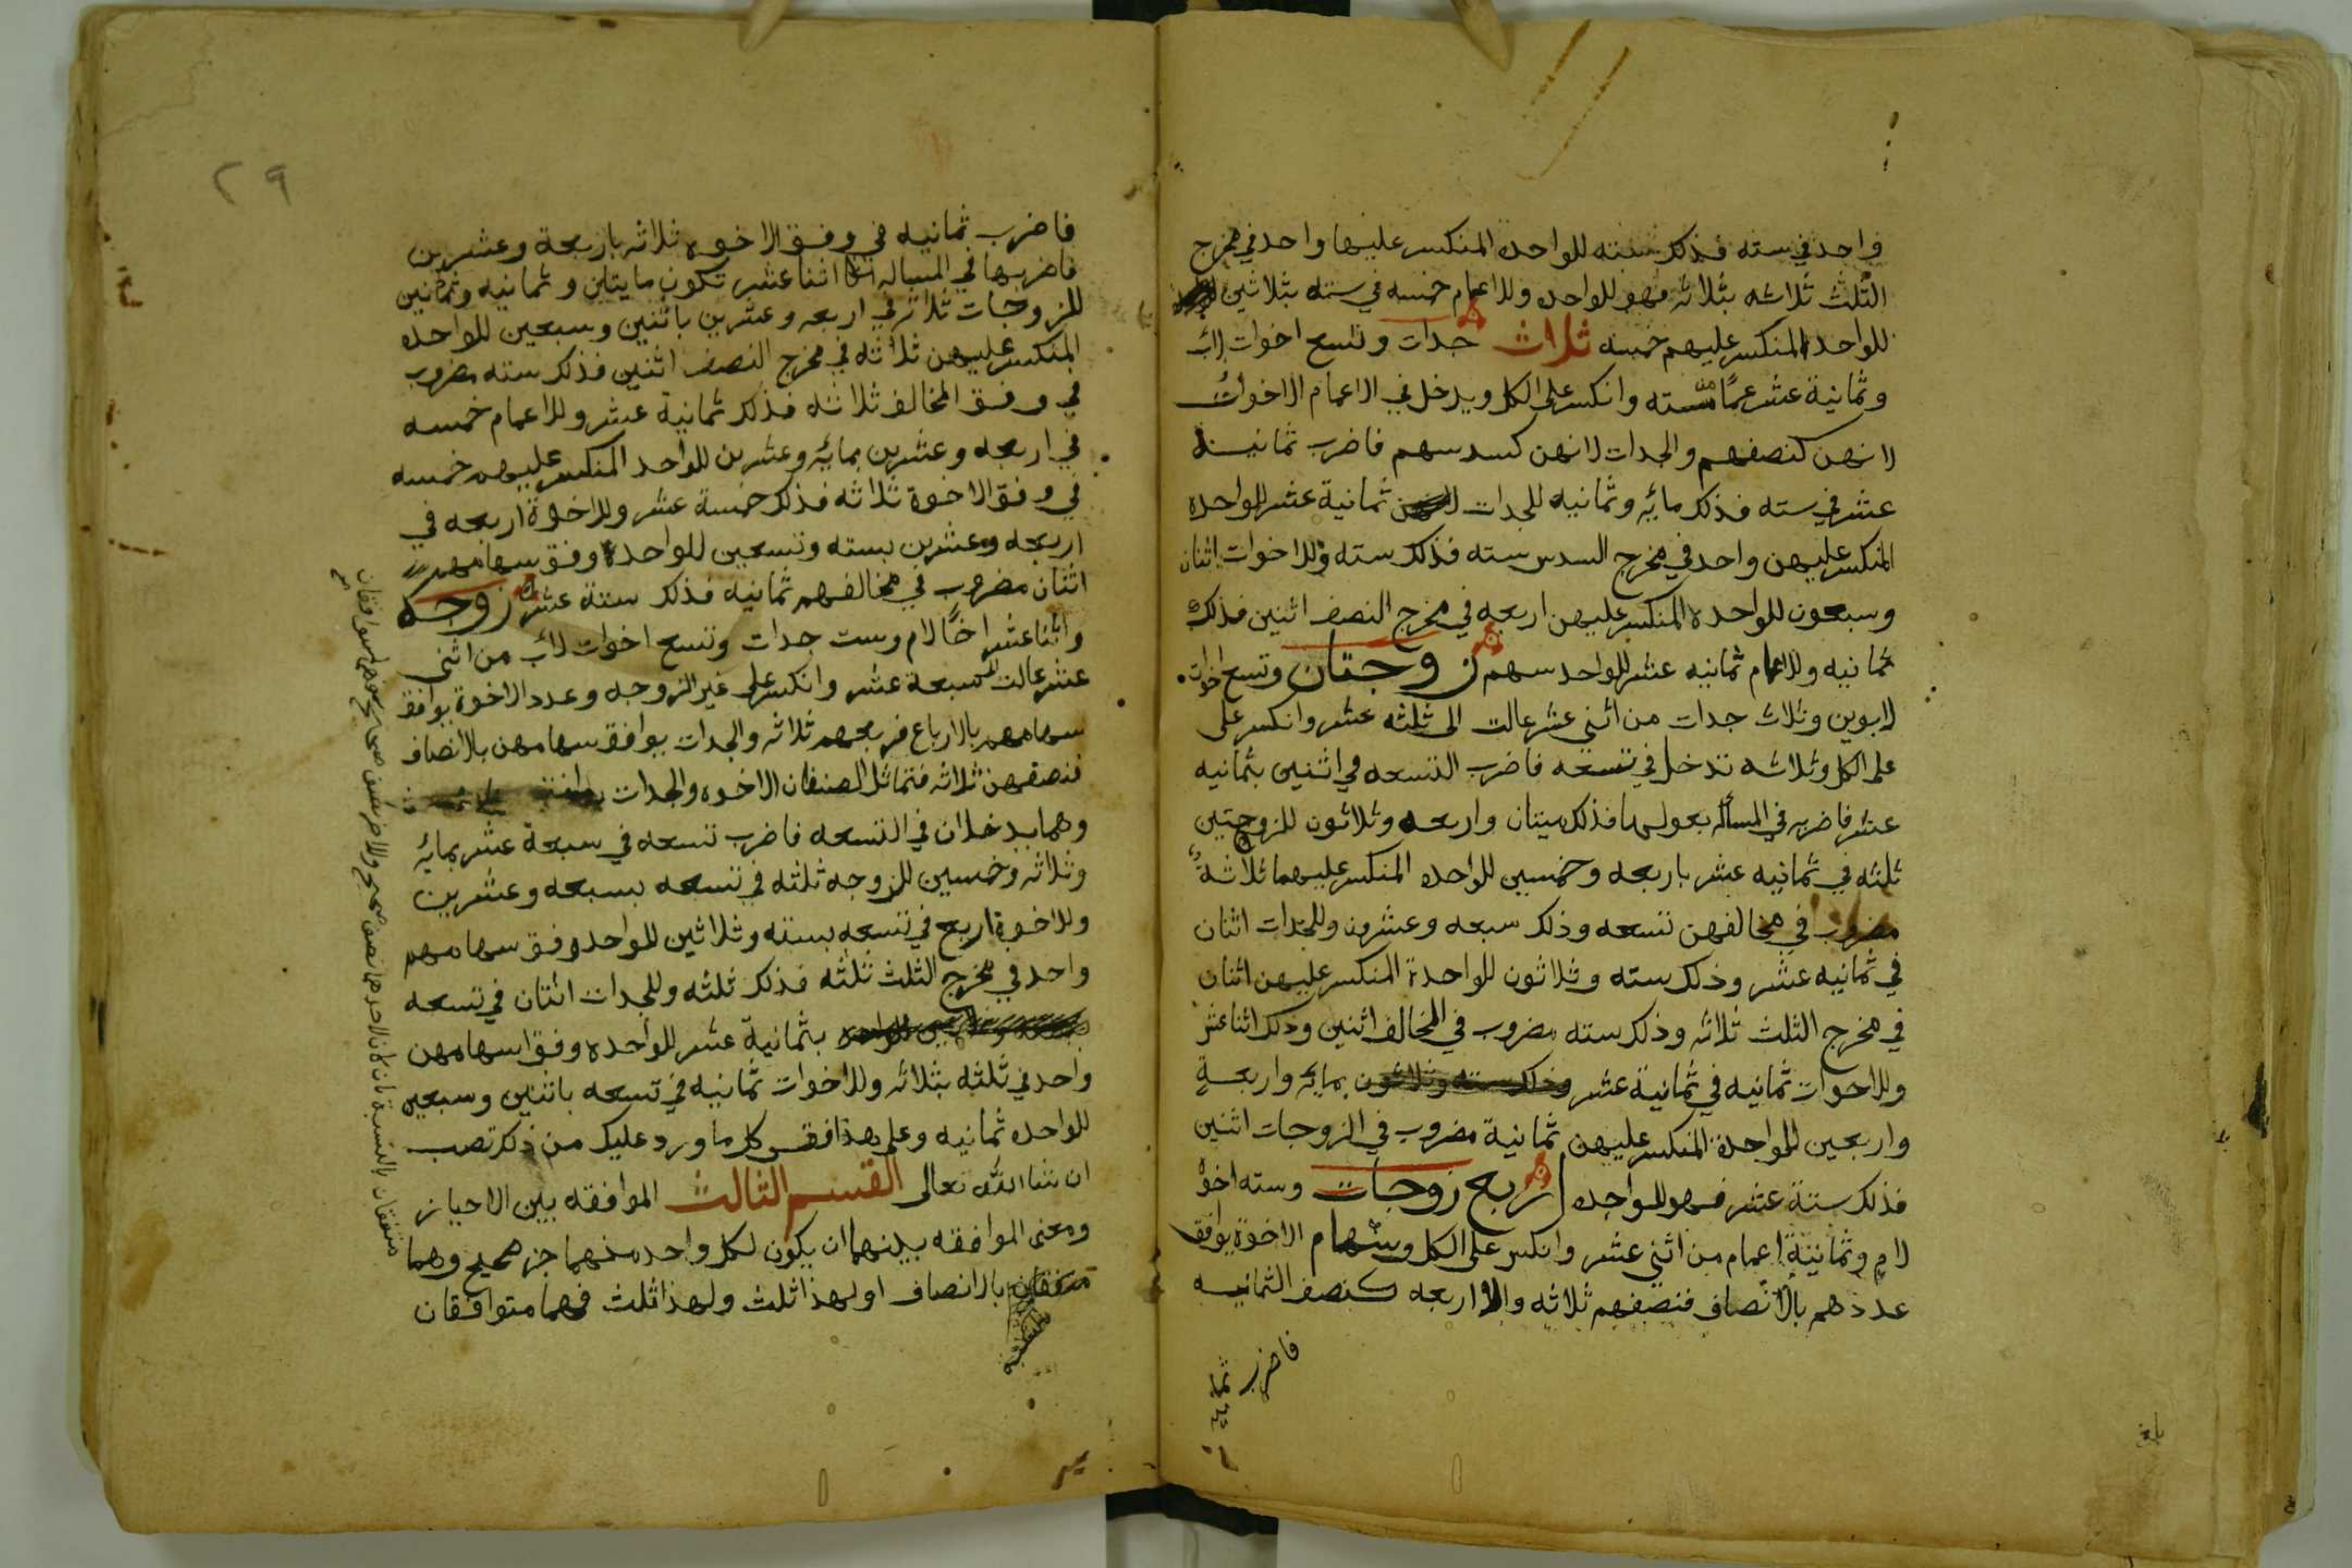 واحد في سته فذلك سته للواحده المنكسر عليها واحد في مخرج
الثلث ثلاثه بثلاثه فهو للواحده وللاعمام خمسه في سته بثلاثين
للواحد المنكسر عليهم خمسه ثلاث جدات وتسع اخوات لاب
وثمانية عشر عمًا من سته وانكسر على الكل ويدخل في الاعمام الاخوات
لانهن كنصفهم والجدات لانهن كسدسهم فاضرب ثمانية
عشر في سته فذلك مايه وثمانيه للجدات ثمانية عشر للواحده
المنكسر عليهن واحد في مخرج السدس سته فذلك سته وللاخوات اثنان
وسبعون للواحده المنكسر عليهن اربعه في مخرج النصف اثنين فذلك
ثمانيه وللاعمام ثمانيه عشر للواحد سهم زوجتان وتسع اخوات
لابوين وثلاث جدات من اثني عشر عالت الى ثلثه عشر وانكسر على
على الكل وثلاثه تدخل في تسعه فاضرب التسعه في اثنين بثمانيه
عشر فاضربه في المسأله بعولها فذلك ميتان واربعه وثلاثون للزوجتين
ثلثه في ثمانيه عشر باربعه وخمسين للواحده المنكسر عليهما ثلاثة
مضروب في مخالفهن تسعه وذلك سبعه وعشرون وللجدات اثنان
في ثمانيه عشر وذلك سته وثلاثون للواحدة المنكسر عليهن اثنان
في مخرج الثلث ثلاثه وذلك سته مضروب في المخالف اثنين وذلك اثنا عشر
وللاخوات ثمانيه في ثمانية عشر وذلك سته وثلاثون بمايه واربعة
واربعين للواحدة المنكسر عليهن ثمانية مضروب في الزوجات اثنين
فذلك ستة عشر فهو للواحده اربع زوجات وسته اخوة
لام وثمانية اعمام من اثني عشر وانكسر على الكل وسهام الاخوة يوافق
عددهم بالانصاف فنصفهم ثلاثه والاربعه كنصف الثمانيه
فاضرب ثمانيه
٢٩
فاضرب ثمانيه في وفق الاخوه ثلاثه باربعة وعشرين
فاضربها في المساله اثنا عشر تكون مايتين وثمانيه وثمانين
للزوجات ثلاثه في اربعه وعشرين باثنين وسبعين للواحده
المنكسر عليهن ثلاثه في مخرج النصف اثنين فذلك سته مضروب
في وفق المخالف ثلاثه فذلك ثمانية عشر وللاعمام خمسه
في اربعه وعشرين بمايه وعشرين للواحد المنكسر عليهم خمسه
في وفق الاخوة ثلاثه فذلك خمسة عشر وللاخوة اربعه في
اربعه وعشرين بسته وتسعين للواحده وفق سهامهم
اثنان مضروب في مخالفهم ثمانيه فذلك ستة عشر زوجه
واثنا عشر اخًا لام وست جدات وتسع اخوات لاب من اثني
عشر عالت لسبعة عشر وانكسر على غير الزوجه وعدد الاخوة يوافق
سهامهم بالارباع فربعهم ثلاثه والجدات يوافق سهامهن بالانصاف
فنصفهن ثلاثه فتماثل الصنفان الاخوه والجدات
وهما يدخلان في التسعه فاضرب تسعه في سبعة عشر بمايه
وثلاثه وخمسين للزوجه ثلثه في تسعه بسبعه وعشرين
وللاخوة اربع في تسعه بسته وثلاثين للواحد وفق سهامهم
واحد في مخرج الثلث ثلثه فذلك ثلثه وللجدات اثنان في تسعه
بثمانية عشر للواحده وفق سهامهن
واحد في ثلثه بثلاثه وللاخوات ثمانيه في تسعه باثنين وسبعين
للواحده ثمانيه وعلى هذا فقس كل ما ورد عليك من ذلك تصب
ان شا الله تعالى القسم الثالث الموافقه بين الاحياز
ومعنى الموافقه بينهما ان يكون لكل واحد منهما جز صحيح وهما
متفقان بالانصاف او لهذا ثلث ولهذا ثلث فهما متوافقان